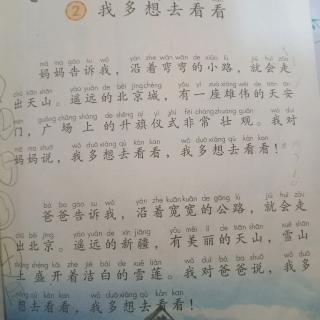 2 我多想去看看
mā ma gào su wǒ yán zhe wān wān de xiǎo lù jiù huì zǒu
妈妈告诉我，沿着弯弯的小路，就会走
chū tiān shān yáo yuǎn de běi jīng chéng yǒu yí zuò xióng wěi de tiān ān
出天山。遥远的北京城，有一座雄伟的天安
mén guǎng chǎng shàng de shēng qí yí shì fēi cháng zhuàng guān wǒ duì
门，广场上的升旗仪式非常壮观。我对
mā ma shuō wǒ duō xiǎng qù kàn kan wǒ duō xiǎng qù kàn kan
妈妈说，我多想去看看，我多想去看看！
bà ba gào su wǒ yán zhe kuān kuān de gōng lù jiù huì zǒu
爸爸告诉我，沿着宽宽的公路，就会走
chū běi jīng yáo yuǎn de xīn jiāng yǒu měi lì de tiān shān xuě shān
出北京。遥远的新疆，有美丽的天山，雪山
shàng shèng kāi zhe jié bái de xuě lián wǒ duì bà ba shuō wǒ duō
上盛开着洁白的雪莲。我对爸爸说，我多
xiǎng qù kàn kan wǒ duō xiǎng qù kàn kan
想去看看，我多想去看看！